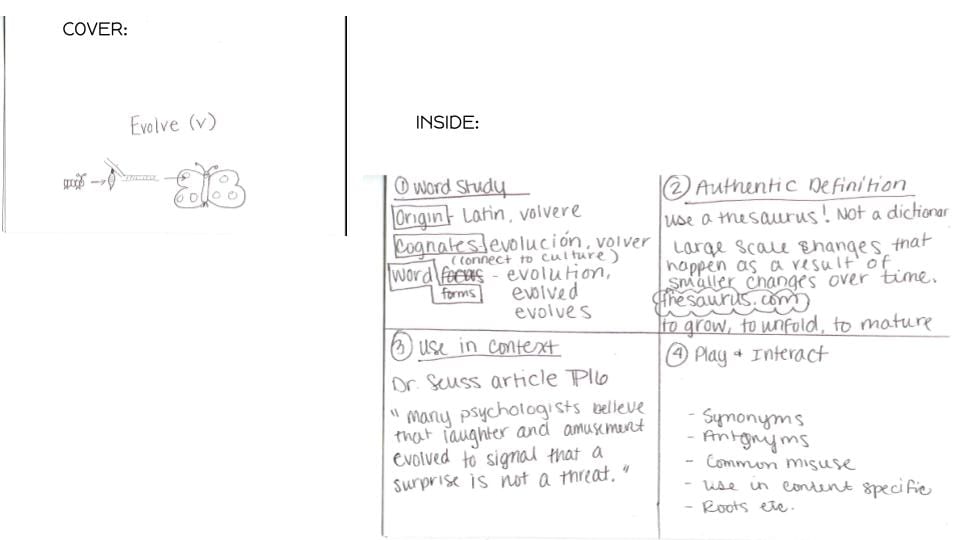 COVER:
Evolve (v)
INSIDE:
① Word Study
Origin - Latin, volvere
Cognates evolución, volver
(connect to culture)
Word focus - evolution,
forms evolved
evolves
② Authentic Definition
use a thesaurus! Not a dictionar
Large scale changes that
happen as a result of
smaller changes over time.
thesaurus.com
to grow, to unfold, to mature
③ Use in context
Dr. Seuss article P16
"Many psychologists believe
that laughter and amusement
evolved to signal that a
surprise is not a threat."
④ Play + Interact
- Synonyms
- Antonyms
- Common misuse
- Use in content specific
- Roots etc.